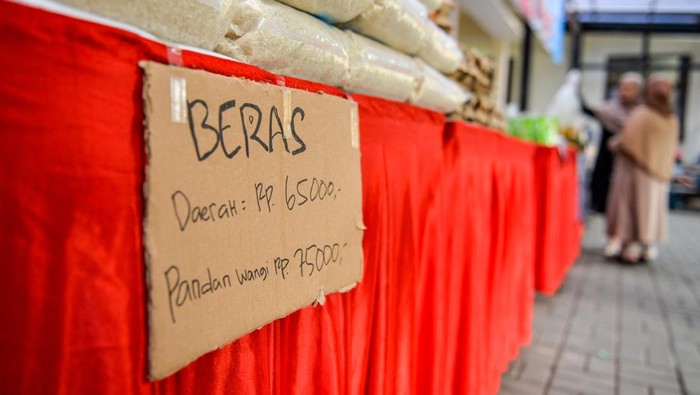 BERAS
Daerah = Rp. 65000,-
Pandan wangi Rp. 75000,-